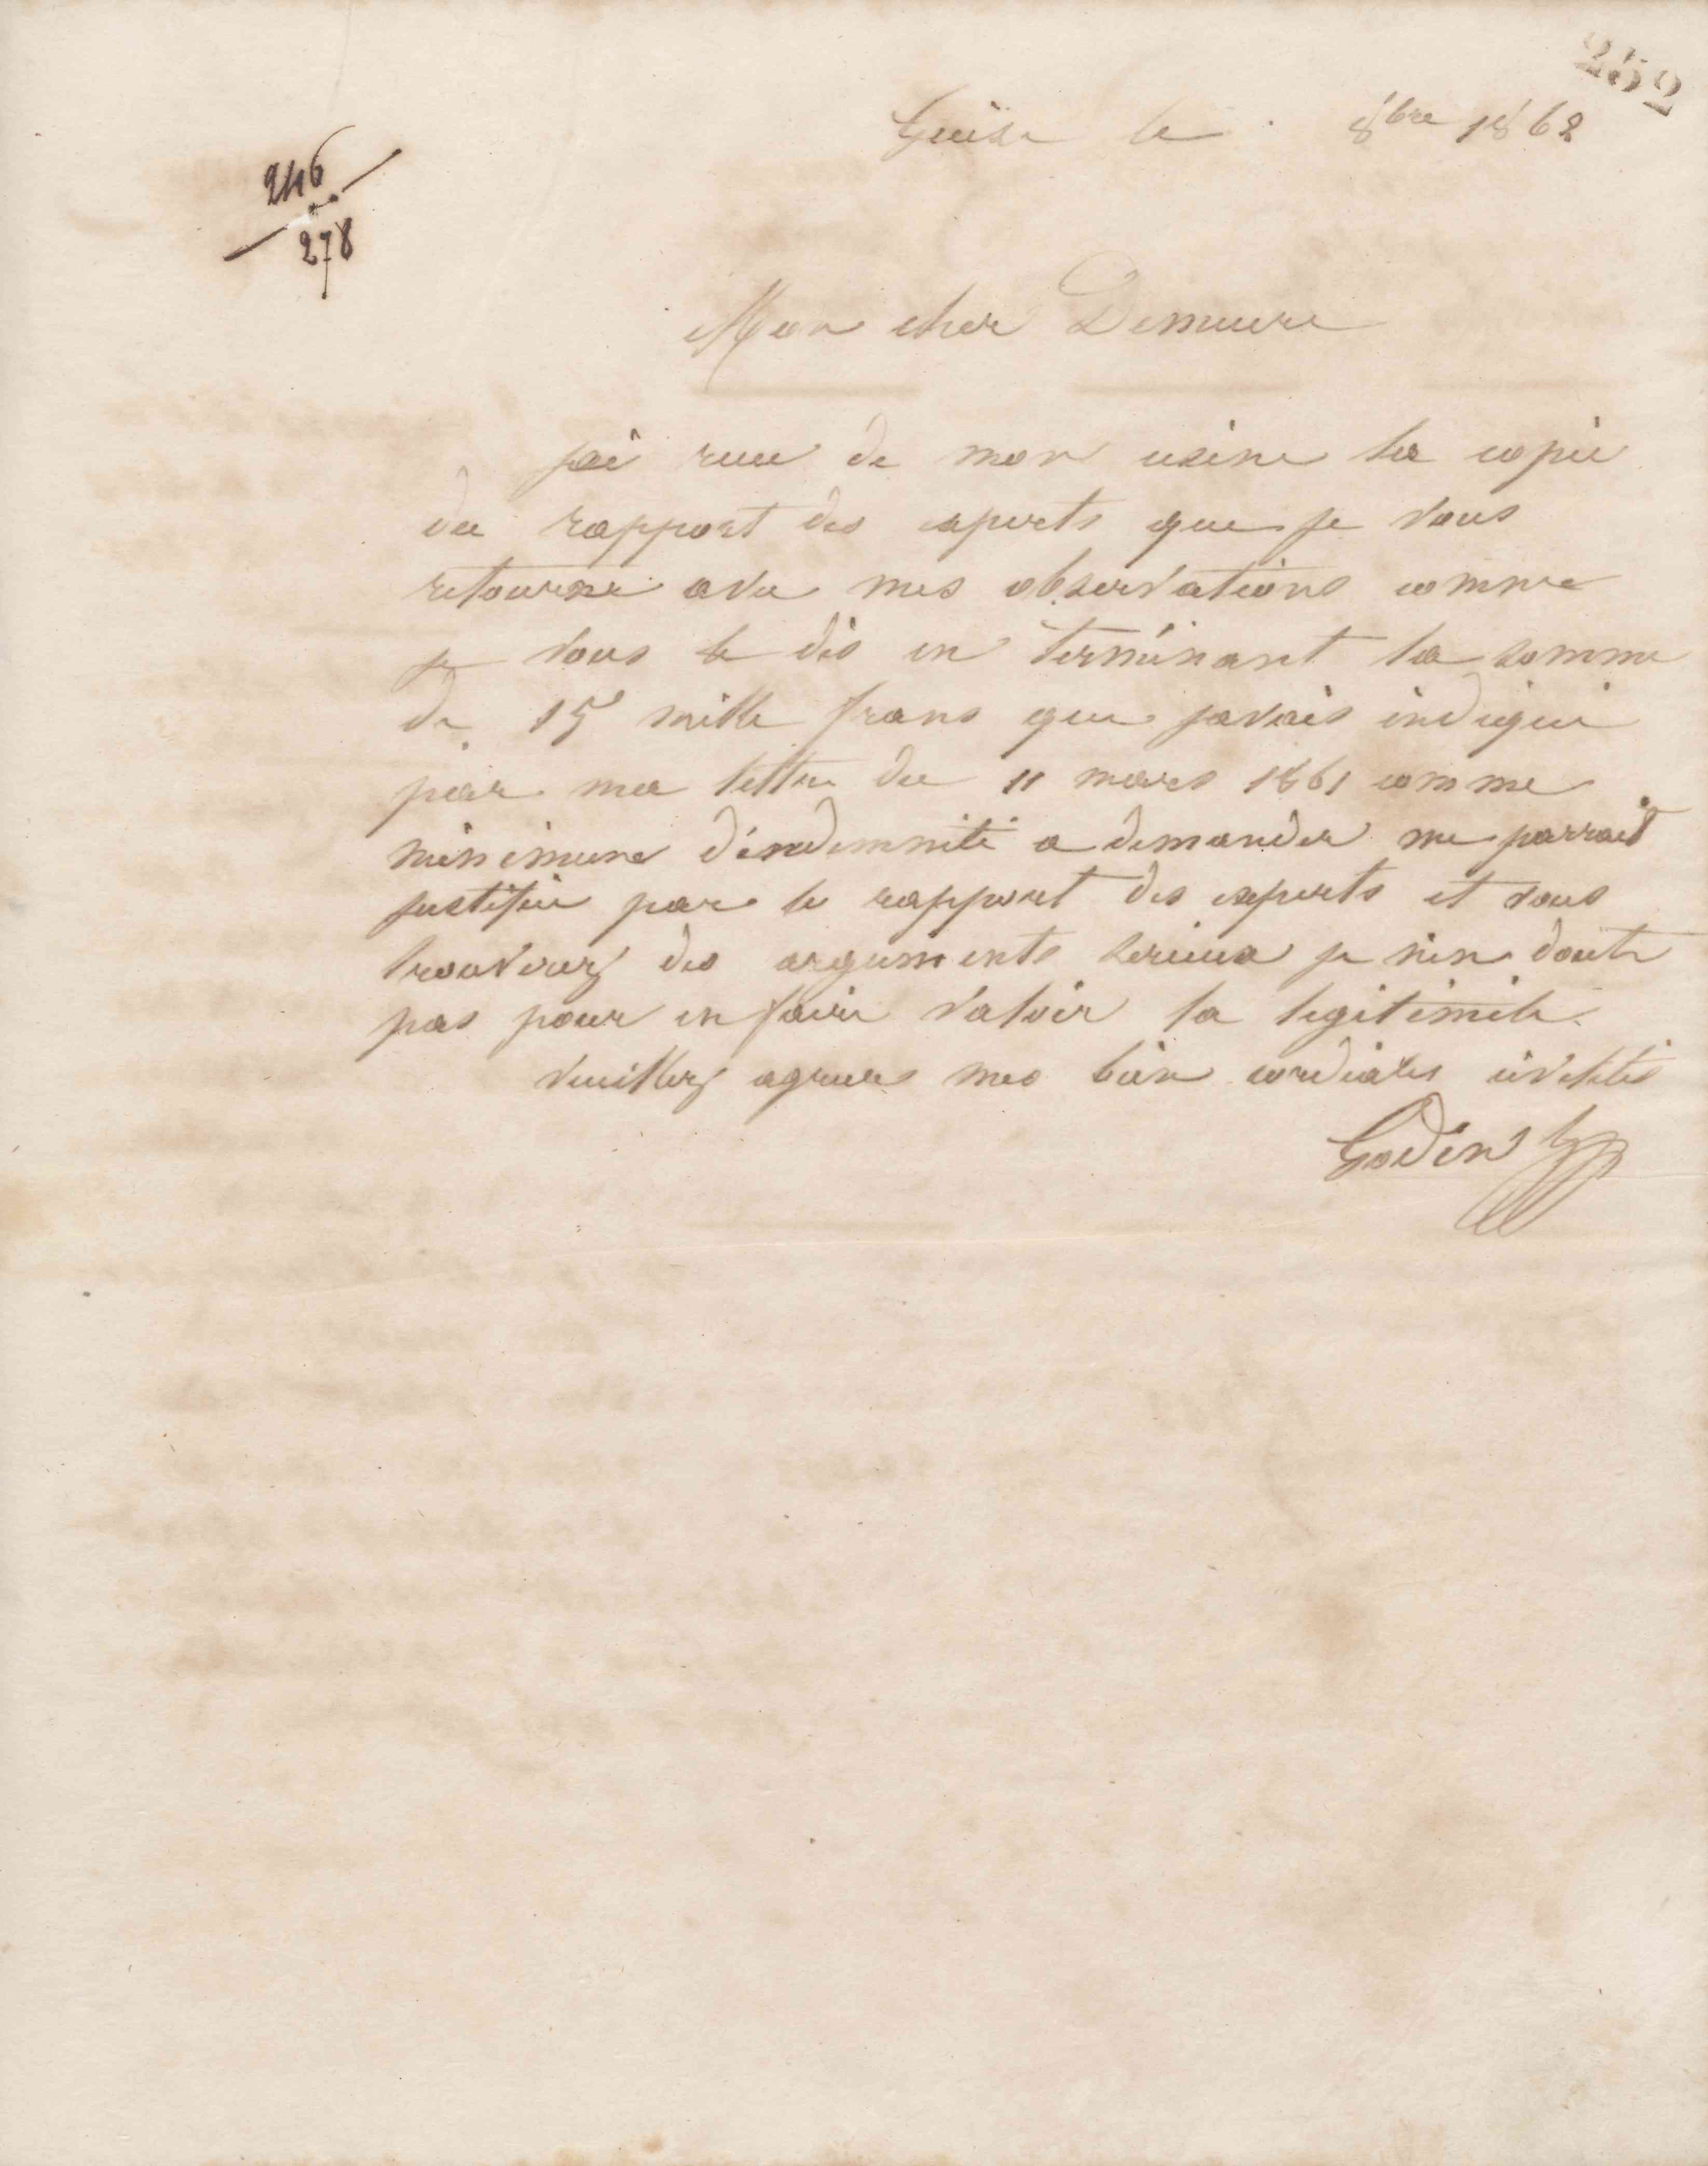 252
Guise le 8bre 1862
246
278
Mon cher Demeure
jai recu de mon usine la copie
du rapport des experts que je vous
retourne avec mes observations comme
je vous le dis en terminant la somme
de 15 mille frans que javais indiqué
par ma lettre du 11 mars 1861 comme
minimum d'indemnité a demander me parrait
justifiée par le rapport des experts et vous
trouverez des arguments serieux je n'en doute
pas pour en faire valoir la legitimité
veuillez agreer mes bien cordiales civilités
Godin